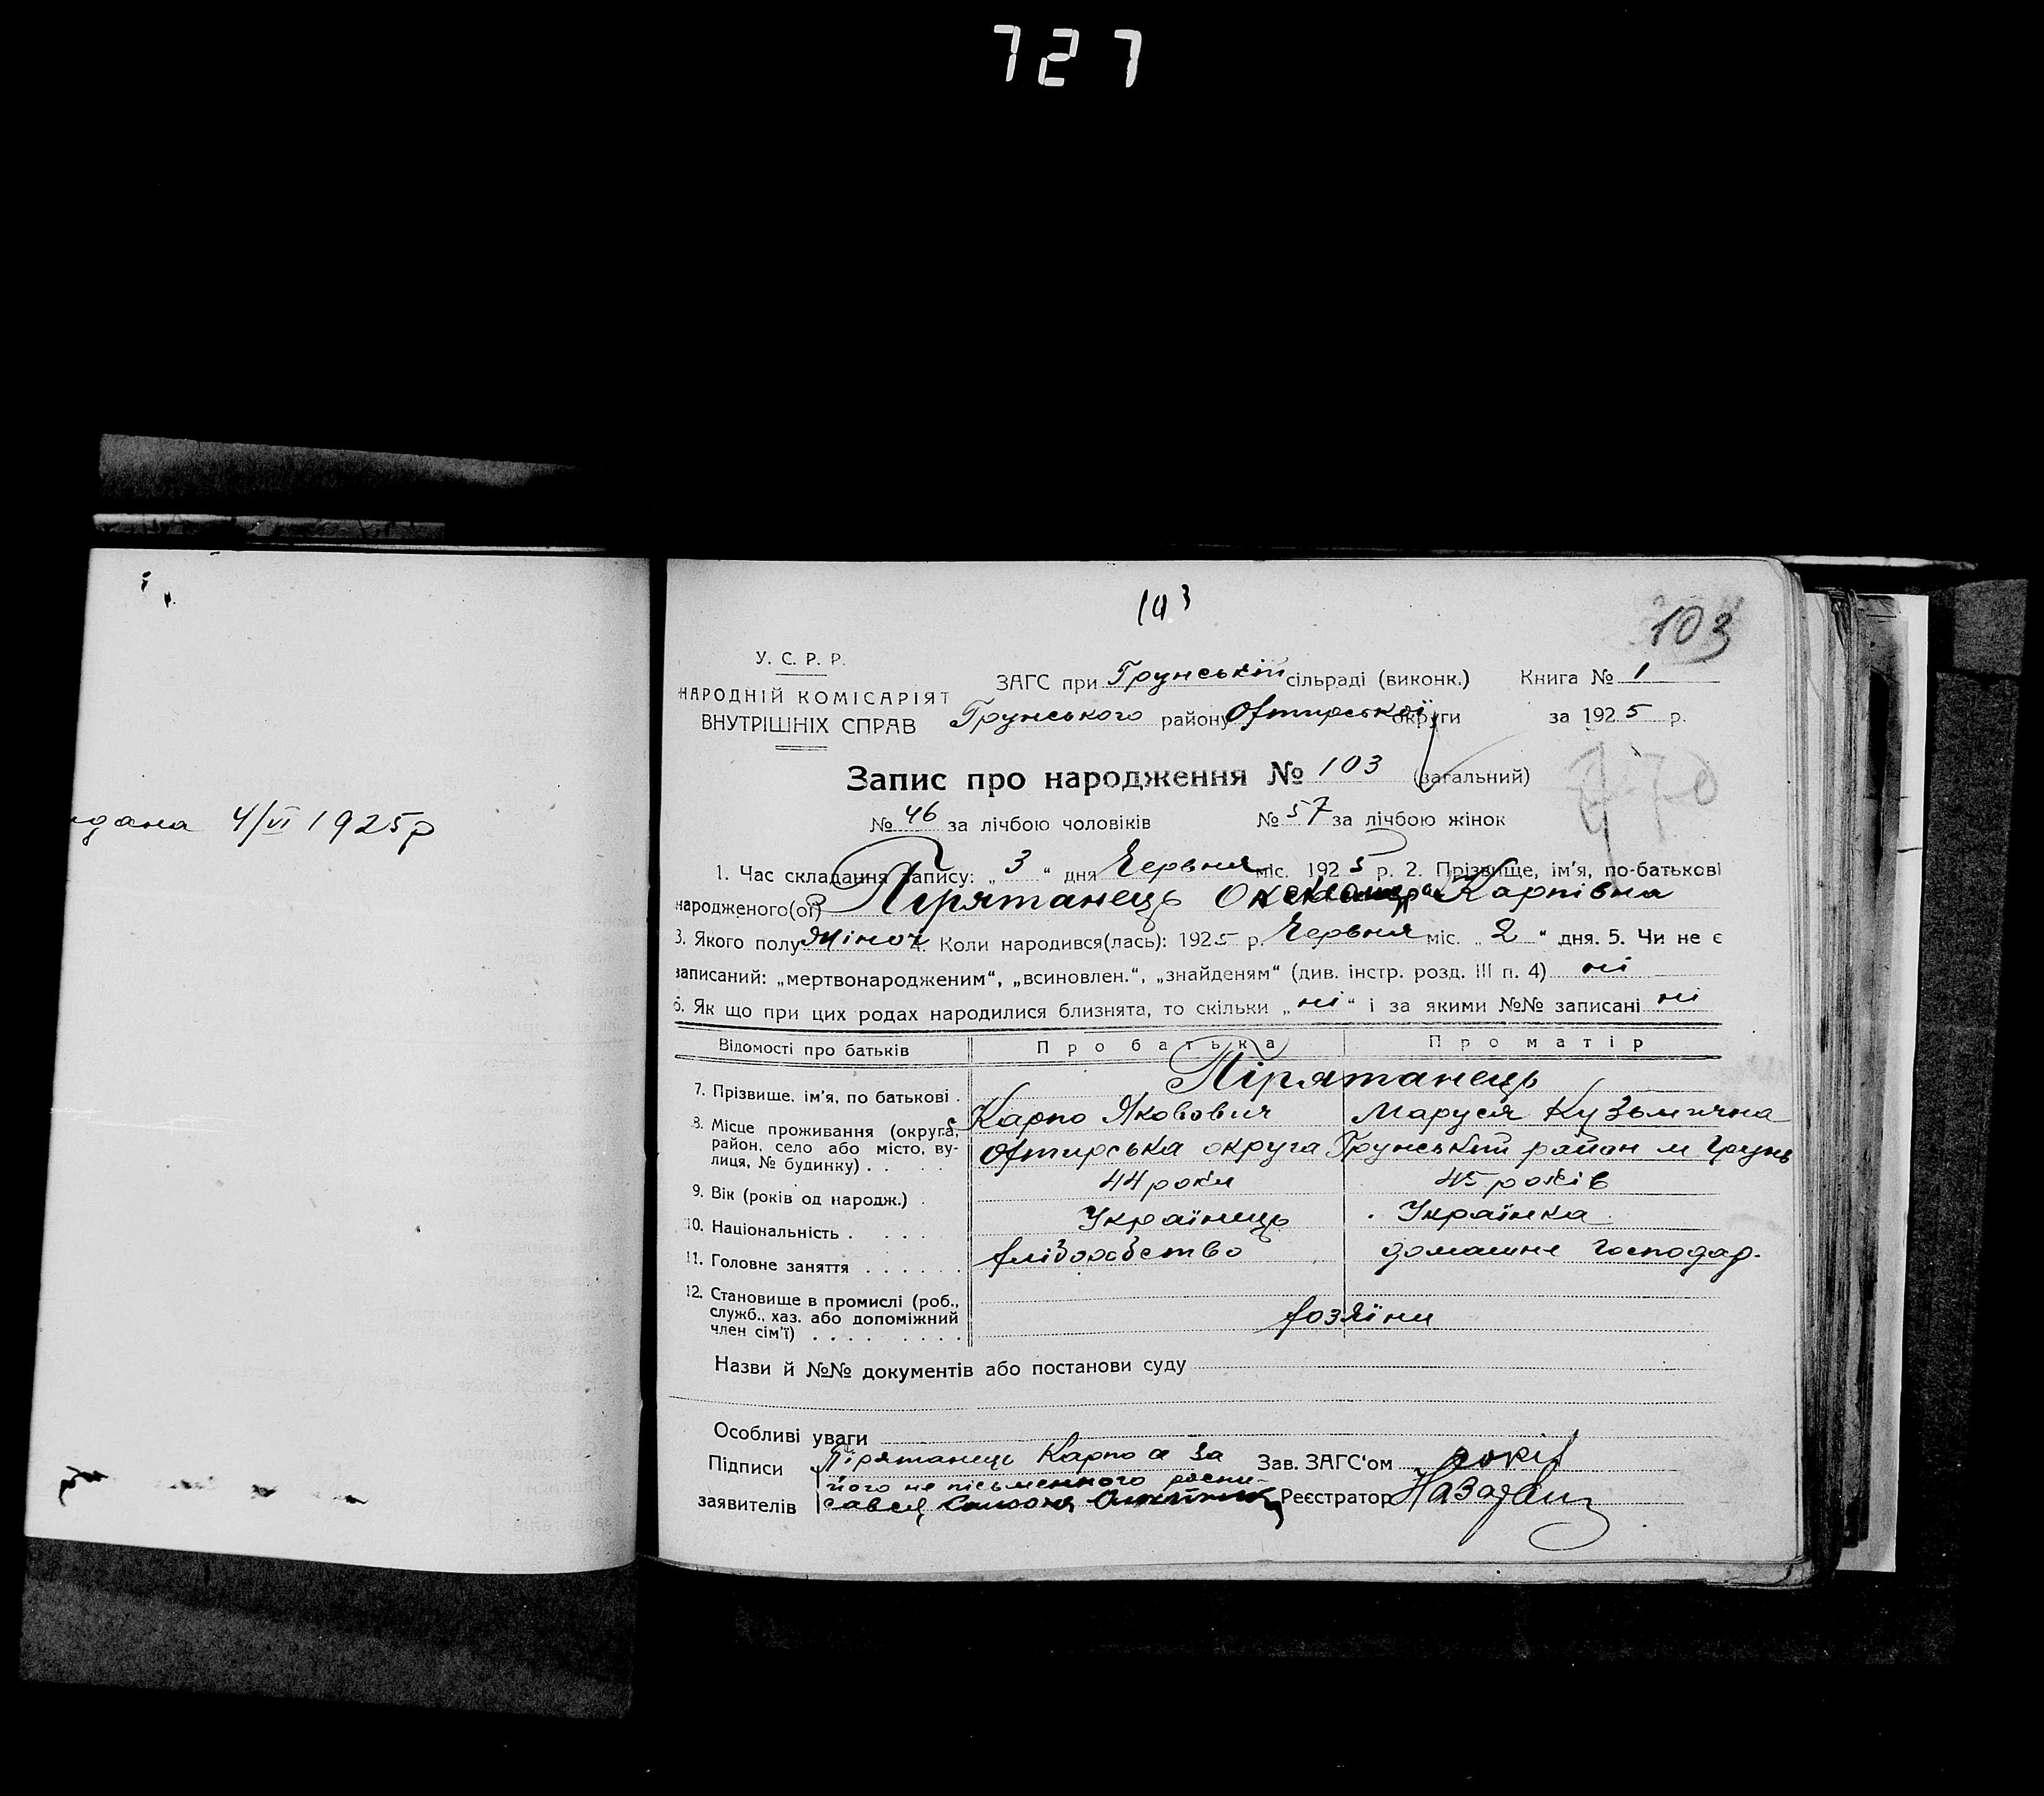 727
103
103
У. С. Р. Р.
НАРОДНІЙ КОМІСАРІЯТ
ВНУТРІШНІХ СПРАВ
ЗАГС при Грунській сільраді (виконк.) Книга № 1
Грунського району Охтирської округи за 1925 р.
Запис про народження № 103 (загальний)
770
№ 46 за лічбою чоловіків № 57 за лічбою жінок
дана 4/VI 1925р
1. Час складання запису: „ 3 “ дня Червня міс. 1925 р. 2. Прізвище, ім'я, по-батькові
народженого(ої) Пірятанець Карпівна
3. Якого полу Жіноч 4. Коли народився(лась): 1925 р. Червня міс. „ 2 “ дня. 5. Чи не є
записаний: „мертвонародженим“, „всиновлен.“, „знайденям“ (див. інстр. розд. III п. 4) ні
6. Як що при цих родах народилися близнята, то скільки „ ні “ і за якими №№ записані ні
Відомості про батьків Про батька Про матір
Пірятанець
7. Прізвище, ім'я, по батькові . Карпо Якович Маруся Кузьмична
8. Місце проживання (округа, район, село або місто, ву-
лиця, № будинку) . . . . Охтирська округа Грунський район м Грунь
9. Вік (років од народж.) . 44 роки 45 років
10. Національність . . . . . Українець Українка
11. Головне заняття . . . . . . хліборобство домашнє господар.
12. Становище в промислі (роб.,
служб., хаз. або допоміжний
член сім'ї) . . . . . . . . хозяїни
Назви й №№ документів або постанови суду
Особливі уваги
Підписи Пірятанець Карпо а за Зав. ЗАГС'ом
його не письменного роспи-
заявителів савсяь Реєстратор